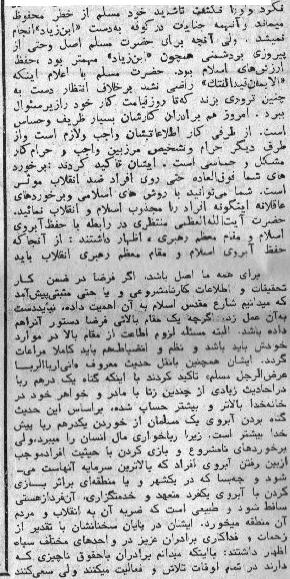 نکرد و ورا نکشت شاید خود مسلم از خطر محفوظ
میماند و آنهمه جنایات در کوفه بدست «ابن‌زیاد» انجام
نمیشد. ولی آنچه برای حضرت مسلم اصل و حتی از
پیروزی بر دشمنی همچون «ابن‌زیاد» مهمتر بود، حفظ
ارزش‌های اسلام بود. حضرت مسلم با اعلام اینکه
«الایمان قیدالفتک» راضی نشد برخلاف انتظار دست به
چنین تروری بزند که تا روز قیامت کار خود را زیر سئوال
ببرد. امروز هم برادران کارشان بسیار ظریف و حساس
است. از طرفی کار اطلاعاتیشان واجب و لازم است و از
طرق دیگر حرام و تشخیص مرز بین واجب و حرام کار
مشکل و حساسی است. ایشان تاکید کردند: برخورد
های شما فوق‌العاده حتی روی افراد ضد انقلاب موثر
است. شما می‌توانید با روش های اسلامی و برخوردهای
عاقلانه اینگونه افراد را مجذوب اسلام و انقلاب نمائید.
حضرت آیت‌الله‌العظمی منتظری در رابطه با حفظ آبروی
اسلام و مقام معظم رهبری، اظهار داشتند: از آنجا که
حفظ آبروی اسلام و مقام معظم رهبری انقلاب باید
برای همه ما اصل باشد، اگر فرضا در ضمن کار
تحقیقات و اطلاعات کار نامشروعی و یا حتی مثبتی پیش‌آمد
که میدانیم شارع مقدس اسلام به آن اهمیت داده، نبایددست
به آن عمل زد، گرچه یک مقام بالائی فرضا دستور آنراهم
داده باشد. البته مسئله لزوم اطاعت از مقام بالا در موارد
خودش باید باشد و نظم و انضباط هم باید کاملا مراعات
گردد. ایشان همچنین با نقل حدیث معروف «انی اربا الربا
عرض الرجل مسلم» تاکید کردند با اینکه گناه یک درهم ربا
در احادیث زیادی از چندین زنا با مادر و خواهر خود در
خانه‌خدا بالاتر و بیشتر حساب شده، براساس این حدیث
گناه بردن آبروی یک مسلمان از خوردن یکدرهم ربا پیش
خدا بیشتر است. زیرا رباخواری مال انسان را میبرد، ولی
برخوردهای نامشروع و بازی کردن با حیثیت افراد، موجب
ازبین رفتن آبروی افراد که بالاترین سرمایه آنهاست می‌-
شود و چه‌بسا که در یکشهر و یا منطقه‌ای براثر بازی
کردن با آبروی یکفرد متعهد و خدمتگزاری، آن‌فرد از هستی
ساقط شود و طبیعی است که ضربه آن به انقلاب و مردم
آن منطقه میخورد. ایشان در پایان سخنانشان با تقدیر از
زحمات و فداکاری برادران عزیز در واحدهای مختلف سپاه
اظهار داشتند: با اینکه میدانم برادران با حقوق ناچیزی که
دارند در تمام اوقات تلاش و فعالیت میکنند ولی سعی‌کنند